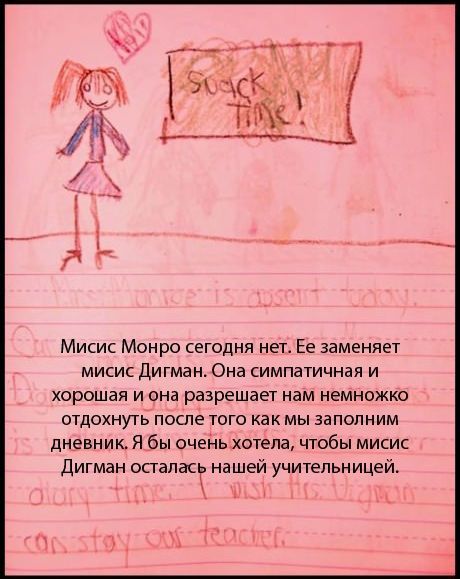 Snack
Time!
Mrs. Monroe is absent today.
Мисис Монро сегодня нет. Ее заменяет
мисис Дигман. Она симпатичная и
хорошая и она разрешает нам немножко
отдохнуть после того как мы заполним
дневник. Я бы очень хотела, чтобы мисис
Дигман осталась нашей учительницей.
diary time. I wish Mrs. Digman
can stay our teacher.